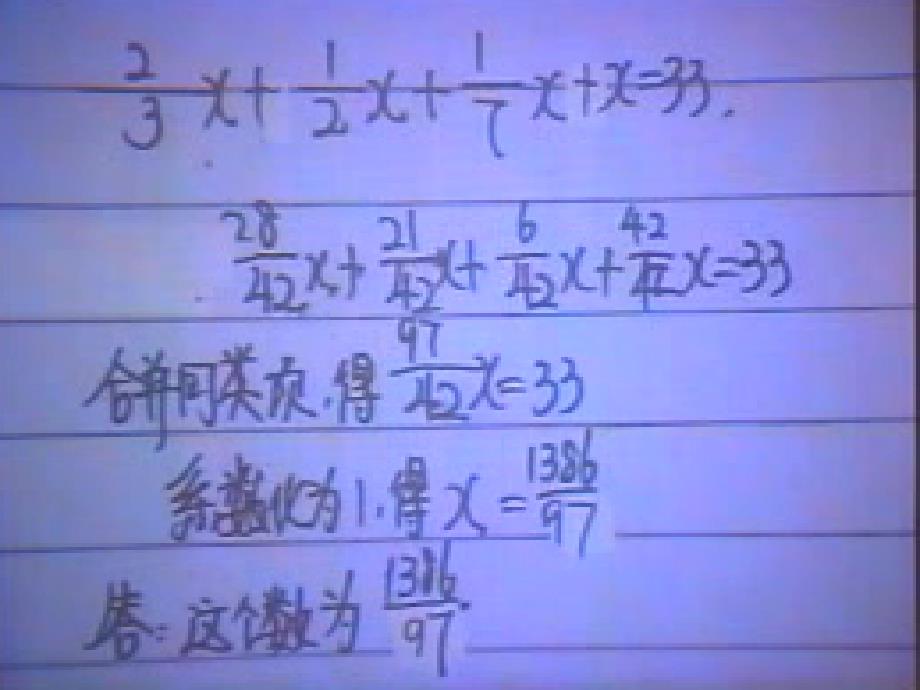 2/3 x + 1/2 x + 1/7 x + x = 33.
28/42 x + 21/42 x + 6/42 x + 42/42 x = 33
合并同类项,得 97/42 x = 33
系数化为1,得 x = 1386/97
答:这个数为 1386/97.